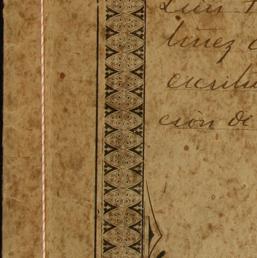 Luis
tinez
escribi
ción de